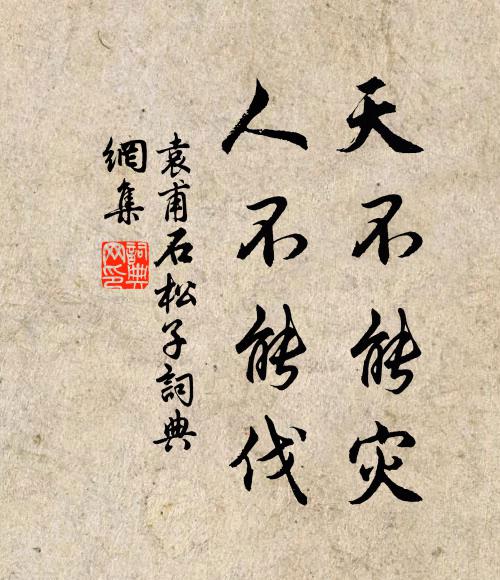 天不能灾
人不能伐
袁甫石松子詞典
網集
詞典
网印